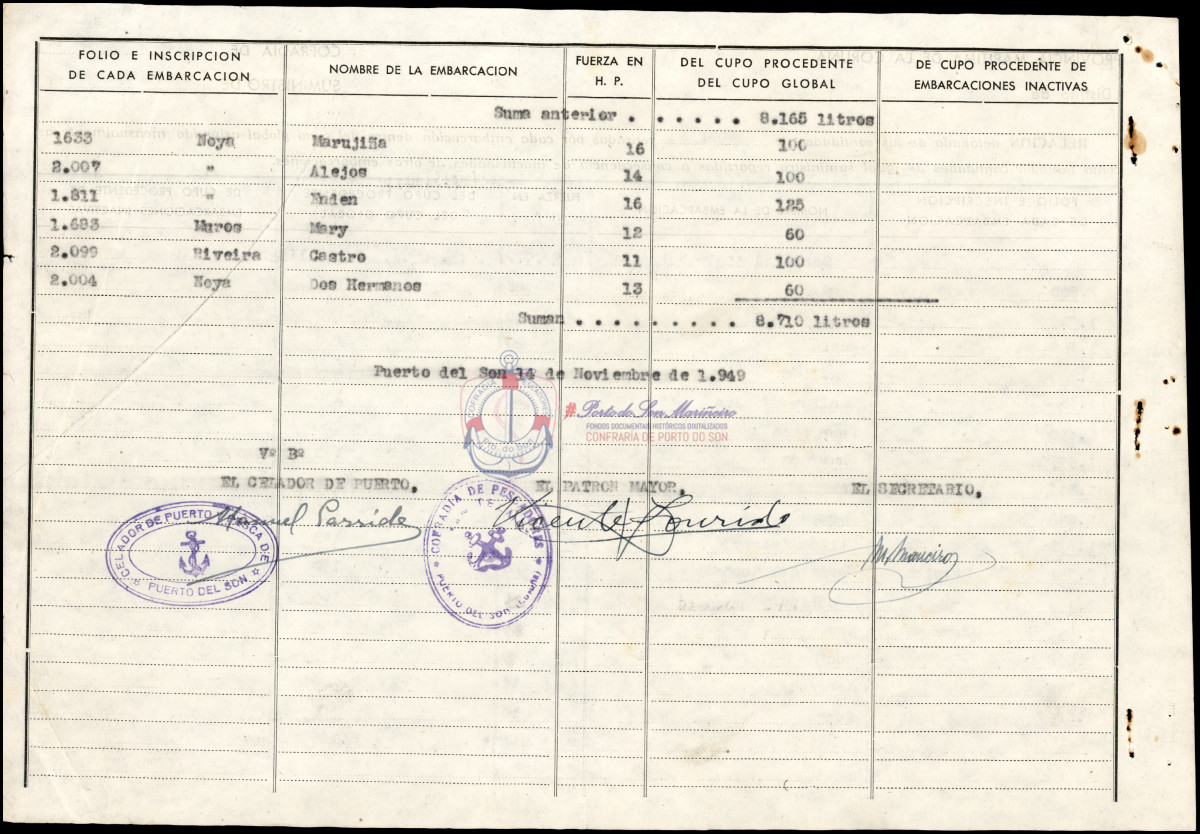 FOLIO E INSCRIPCION DE CADA EMBARCACION
NOMBRE DE LA EMBARCACION
FUERZA EN H. P.
DEL CUPO PROCEDENTE DEL CUPO GLOBAL
DE CUPO PROCEDENTE DE EMBARCACIONES INACTIVAS
Suma anterior . . . . . . 8.165 litros
1633 Noya Marujiña 16 100
2.007 " Alejos 14 100
1.811 " Enden 16 125
1.693 Muros Mary 12 60
2.099 Riveira Castro 11 100
2.004 Noya Dos Hermanos 13 60
Suman . . . . . . . . . 8.710 litros
Puerto del Son 14 de Noviembre de 1.949
#Porto do Son Mariñeiro
FONDOS DOCUMENTAIS HISTÓRICOS DIXITALIZADOS
CONFRARÍA DE PORTO DO SON
Vº Bº
EL CELADOR DE PUERTO,
EL PATRON MAYOR,
EL SECRETARIO,
Vicente Lourido
CELADOR DE PUERTO Y PESCA DE
PUERTO DEL SON
COFRADIA DE PESCADORES
PUERTO DEL SON (Coruña)